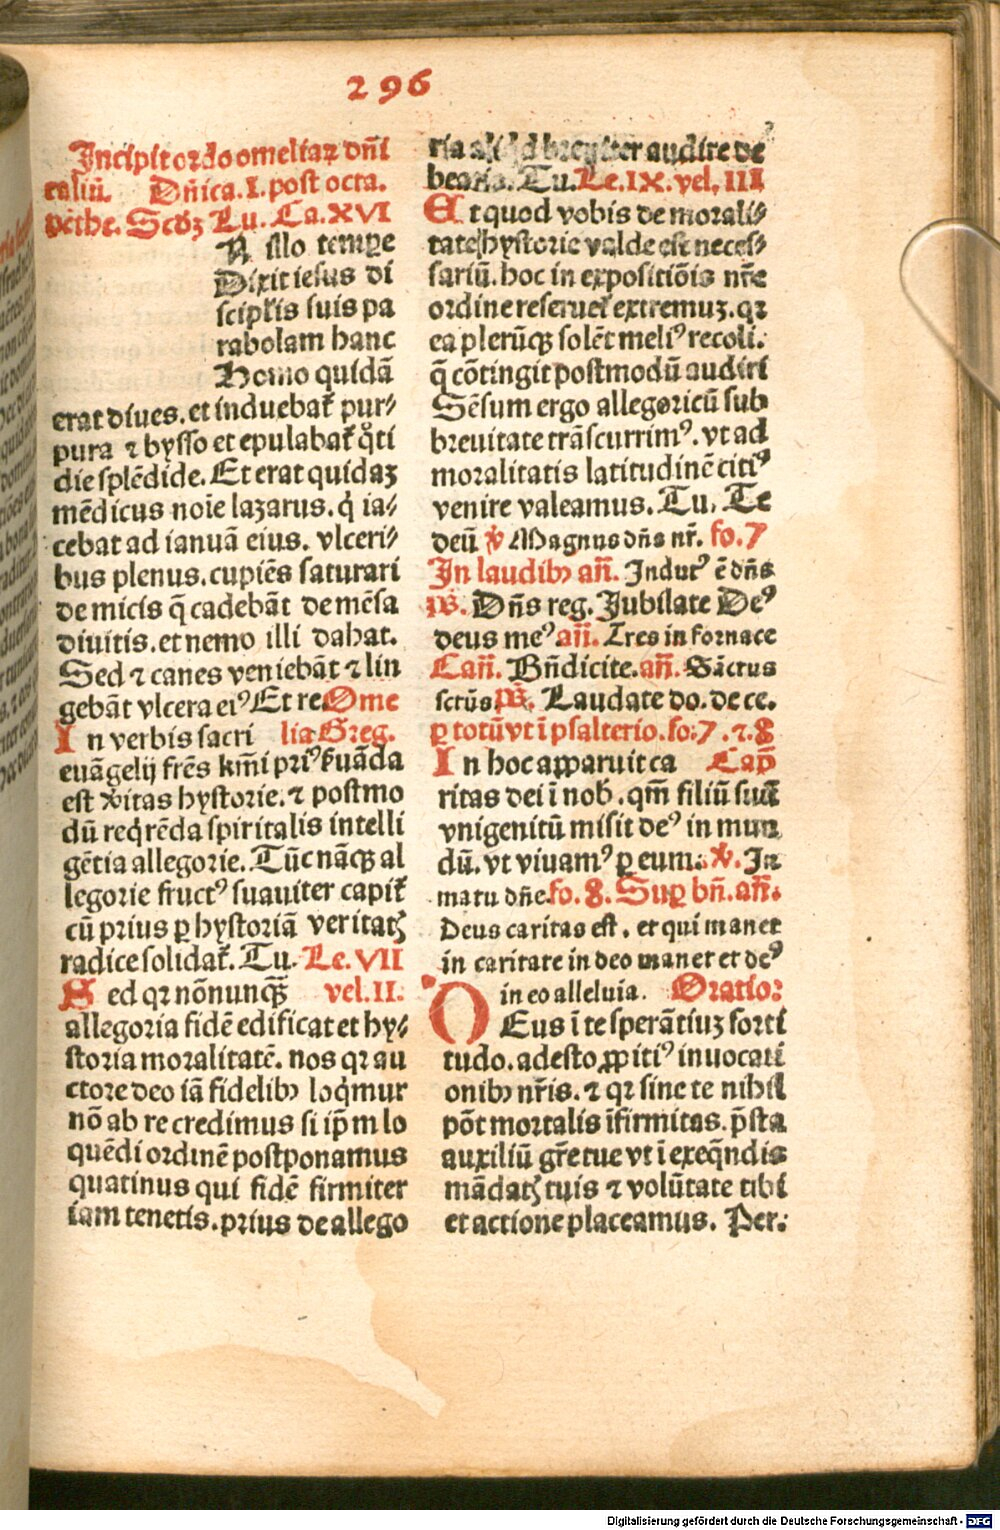 296
Incipit ordo omeliaꝝ dn̄i
caliū. Dn̄ica. I. post octa.
pēthe. Scd̓ꝫ Lu. Ca. XVI
N illo tempe
Dixit iesus di
scipl̓is suis pa
rabolam hanc
Homo quidā
erat diues. et induebat᷑ pur⸗
pura ⁊ bysso et epulabat᷑ q̊ti
die splēdide. Et erat quidaꝫ
mēdicus noīe lazarus. q̇ ia⸗
cebat ad ianuā eius. vlceri⸗
bus plenus. cupiēs saturari
de micis q̄ cadebāt de mēsa
diuitis. et nemo illi dabat.
Sed ⁊ canes veniebāt ⁊ lin
gebāt vlcera eiꝰ Et re. Ome
In verbis sacri lia Greg.
euāgelij frēs km̄i priꝰ ẜuāda
est v̓itas hystorie. ⁊ postmo
dū req̇rēda spiritalis intelli
gētia allegorie. Tūc nāqꝫ al
legorie fructꝰ suauiter capit᷑
cū prius ꝑ hystoriā veritatꝭ
radice solidat᷑. Tu. Le. VII
Sed qꝛ nōnunqꝫ̄ vel. II.
allegoria fidē edificat et hy⸗
storia moralitatē. nos qꝛ au
ctore deo iā fidelibꝰ loq̇mur
nō ab re credimus si ip̄m lo
quēdi ordinē postponamus
quatinus qui fidē firmiter
iam tenetis. prius de allego
ria breuiter audire de
beatis. Tu. Le. IX. vel. III
Et quod vobis de morali⸗
tate hystorie valde est neces⸗
sariū. hoc in expositiōis nr̄e
ordine reseruet᷑ extremuꝫ. qꝛ
ea plerūqꝫ solēt meliꝰ recoli.
q̄ cōtingit postmodū audiri
Sēsum ergo allegoricū sub
breuitate trāscurrimꝰ. vt ad
moralitatis latitudinē citiꝰ
venire valeamus. Tu. Te
deū ꝟ Magnus dn̄s nr̄. fo. 7
In laudibꝰ an̄. Indutꝰ ē dn̄s
ps̄. Dn̄s reg. Jubilate Deꝰ
deus meꝰ an̄. Tres in fornace
Can̄. Bn̄dicite. an̄. Sāctus
sctūs. ps̄. Laudate do. de ce.
ꝑ totū vt ī psalterio. fo: 7. ⁊. 8
In hoc apparuit ca Cap̄
ritas dei ī nob̓. qm̄ filiū suū
vnigenitū misit deꝰ in mun
dū. vt viuamꝰ ꝑ eum. ꝟ. In
matu dn̄e. fo. 8. Suꝑ bn̄. an̄.
Deus caritas est. et qui manet
in caritate in deo manet et deꝰ
in eo alleluia. Oratio:
DEus ī te sperātiuꝫ forti
tudo. adesto ꝓpitiꝰ inuocati
onibꝰ nr̄is. ⁊ qꝛ sine te nihil
pōt mortalis īfirmitas. p̄sta
auxiliū gr̄e tue vt ī exeq̄ndis
mādatꝭ tuis ⁊ volūtate tibi
et actione placeamus. Per:
Digitalisierung gefördert durch die Deutsche Forschungsgemeinschaft - DFG